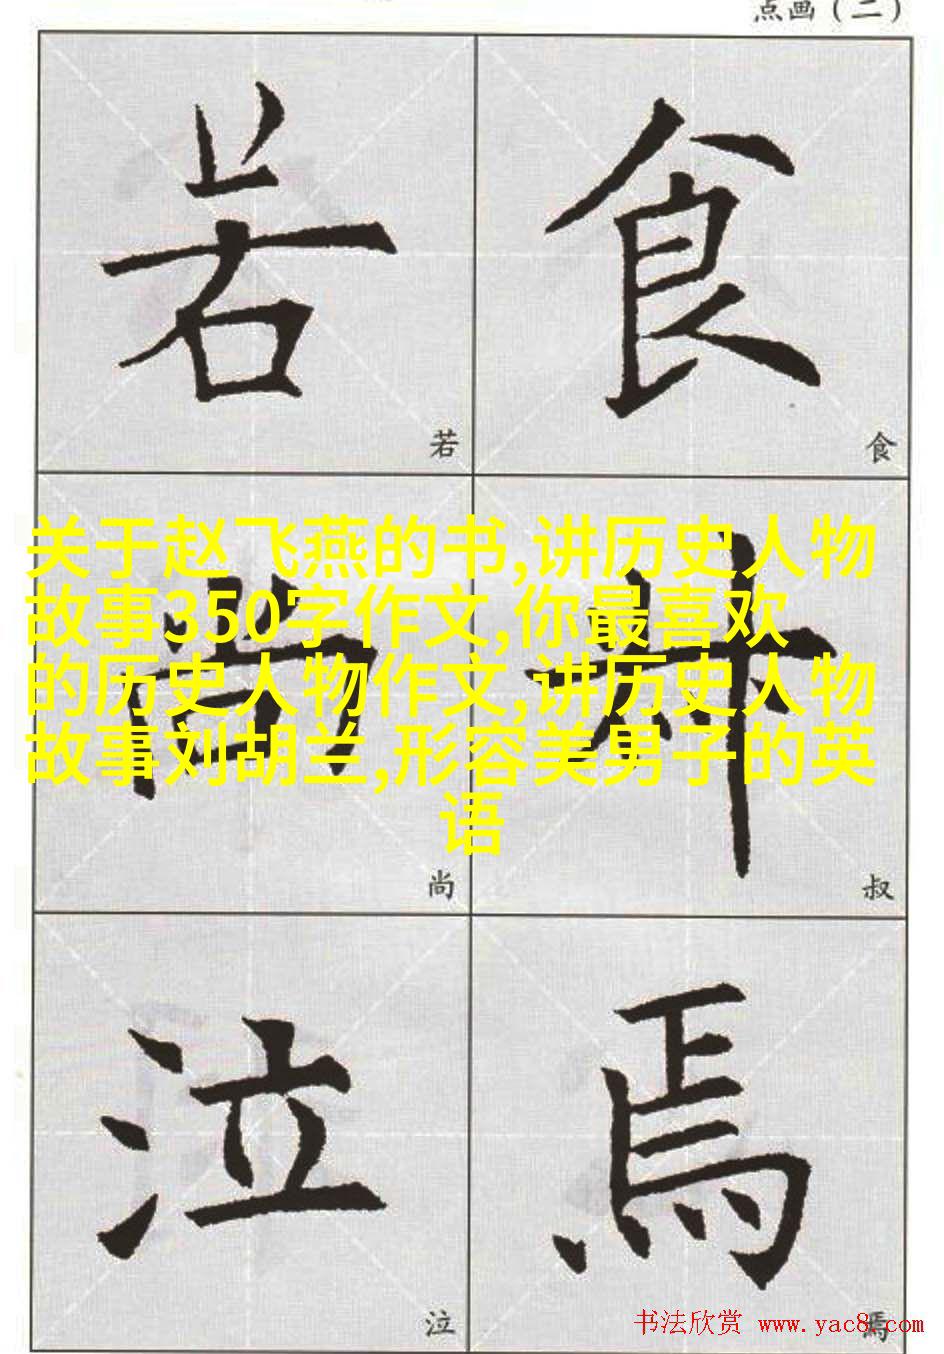 点画（二）
若 食
若 食
关于赵飞燕的书,讲历史人物
故事350字作文,你最喜欢
的历史人物作文,讲历史人物
故事刘胡兰,形容美男子的英
语
尚 叔
尚 叔
泣 焉
泣 焉
书法欣赏 www.yac8.com